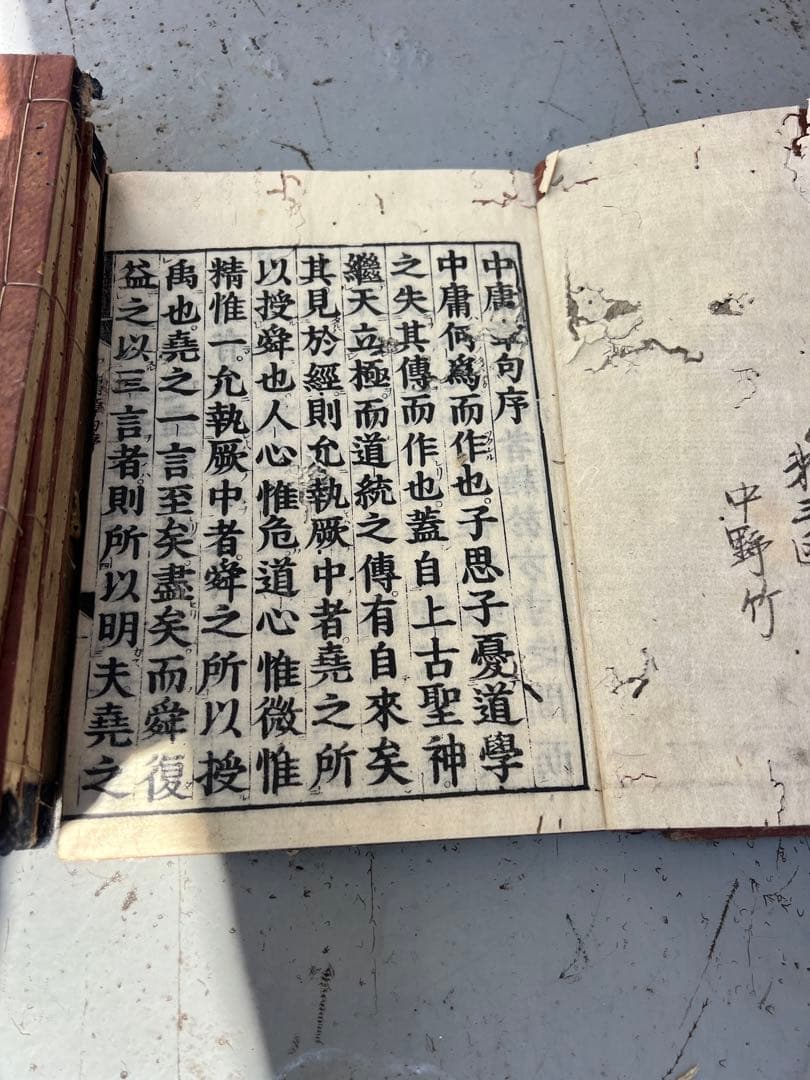 中野竹
中庸章句序
中庸何爲而作也子思子憂道學
之失其傳而作也蓋自上古聖神
繼天立極而道統之傳有自來矣
其見於經則允執厥中者堯之所
以授舜也人心惟危道心惟微惟
精惟一允執厥中者舜之所以授
禹也堯之一言至矣盡矣而舜復
益之以三言者則所以明夫堯之